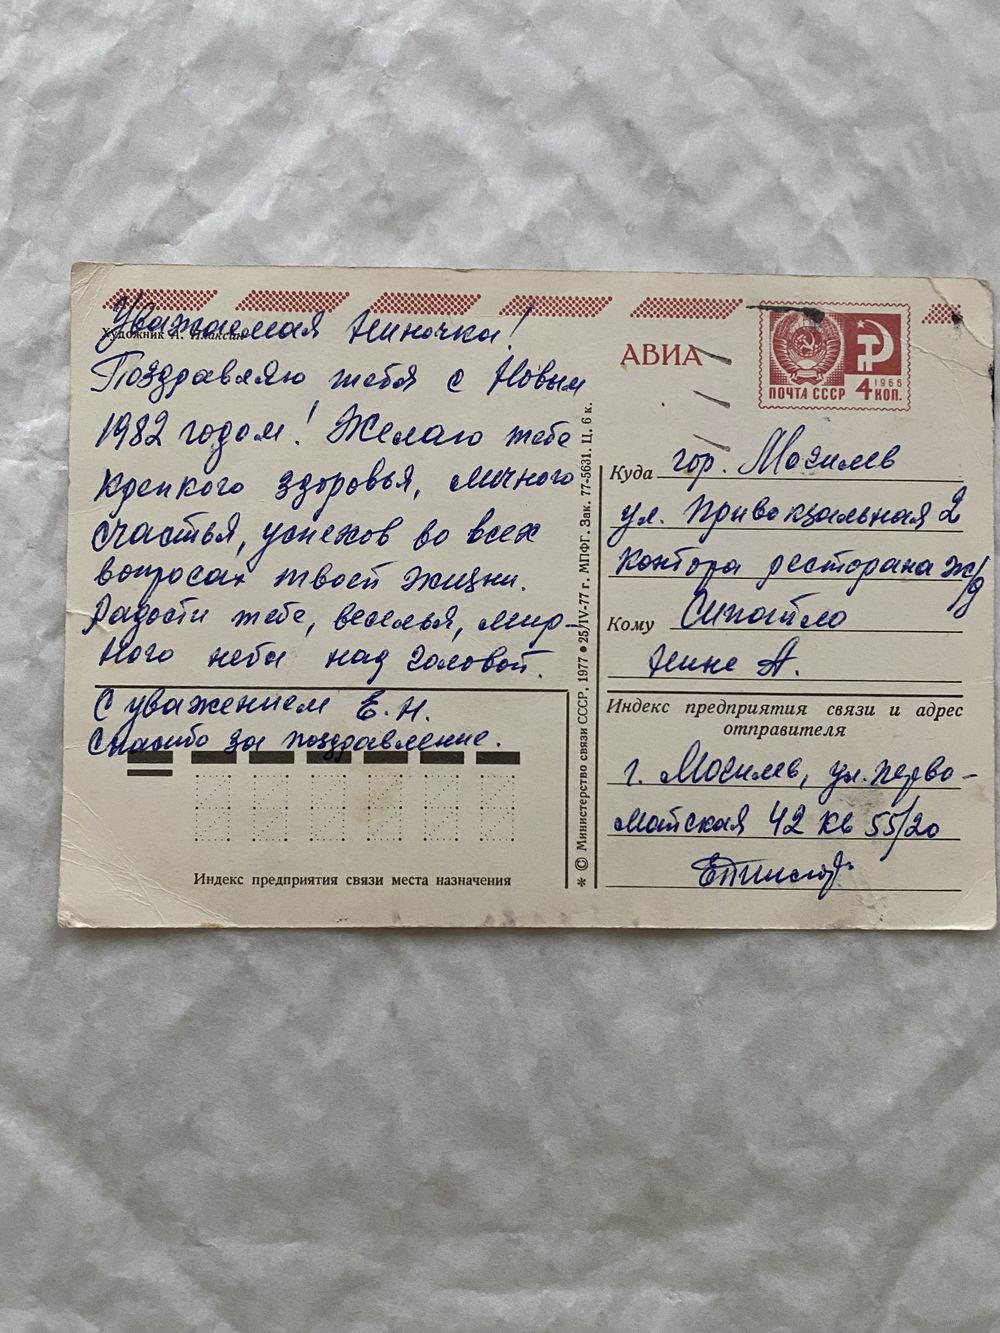 Уважаемая Ниночка!
Художник А. Плаксин
Поздравляю тебя с Новым
1982 годом! Желаю тебе
крепкого здоровья, личного
счастья, успехов во всех
вопросах твоей жизни.
Радости тебе, веселья, мир-
ного неба над головой.
С уважением Е. Н.
Спасибо за поздравление.
Индекс предприятия связи места назначения
* © Министерство связи СССР. 1977 • 25/IV-77 г. МПФГ. Зак. 77-5631. Ц. 6 к.
АВИА
ПОЧТА СССР 4 1966 КОП.
Куда гор. Могилев
ул. Привокзальная 2
Контора ресторана ж/д
Кому
Нине А.
Индекс предприятия связи и адрес
отправителя
г. Могилев, ул. Перво-
майская 42 кв 55/20